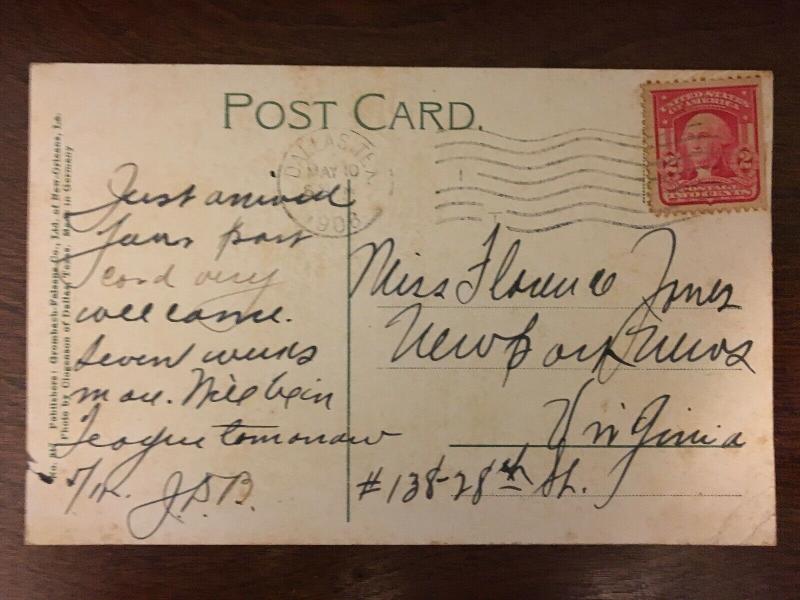 POST CARD.
No. Publishers: Grombach-Faisans Co., Ltd. of New-Orleans, La.
Photo by Clogenson of Dallas, Texas. Made in Germany
DALLAS, TEX.
MAY 10
190
UNITED STATES
OF AMERICA
2 2
POSTAGE
TWO CENTS
Just arrived
Your post
card very
wellcome.
Seven weeks
more. Will begin
League tomorrow
J.D.B.
Miss Florence Jones
Newport News
Virginia
#138-28th St.